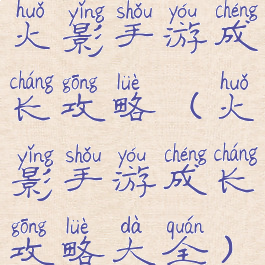 huǒ yǐng shǒu yóu chéng
火影手游成
cháng gōng lüè huǒ
长攻略（火
yǐng shǒu yóu chéng cháng
影手游成长
gōng lüè dà quán
攻略大全）